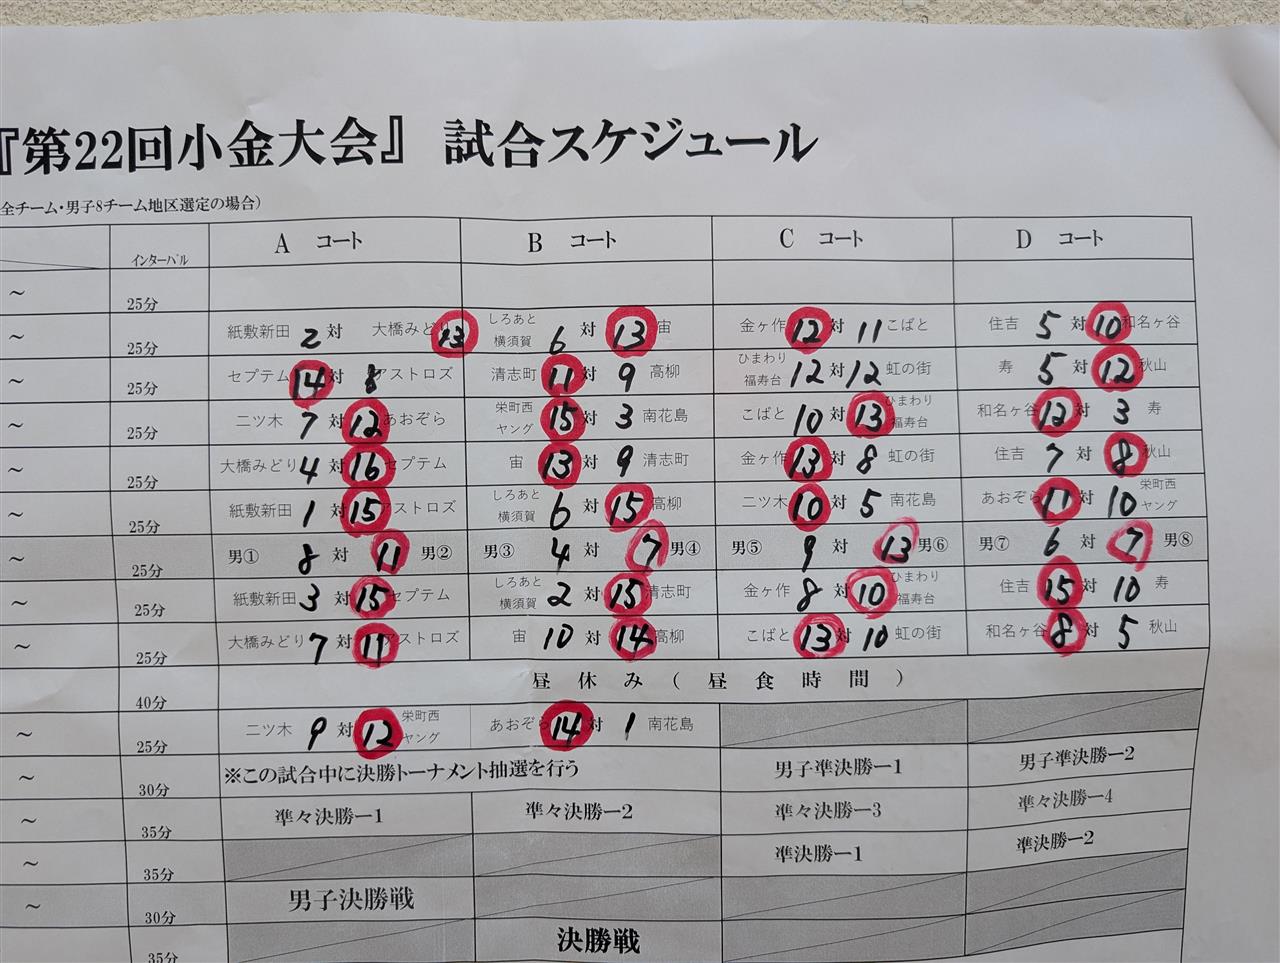 『第22回小金大会』 試合スケジュール
全チーム・男子8チーム地区選定の場合）
インターバル A コート B コート C コート D コート
～ 25分
～ 25分 紙敷新田 2 対 13 大橋みどり しろあと横須賀 6 対 13 宙 金ヶ作 12 対 11 こばと 住吉 5 対 10 和名ヶ谷
～ 25分 セプテム 14 対 8 アストロズ 清志町 11 対 9 高柳 ひまわり福寿台 12 対 12 虹の街 寿 5 対 12 秋山
～ 25分 二ツ木 7 対 12 あおぞら 栄町西ヤング 15 対 3 南花島 こばと 10 対 13 ひまわり福寿台 和名ヶ谷 12 対 3 寿
～ 25分 大橋みどり 4 対 16 セプテム 宙 13 対 9 清志町 金ヶ作 13 対 8 虹の街 住吉 7 対 8 秋山
～ 25分 紙敷新田 1 対 15 アストロズ しろあと横須賀 6 対 15 高柳 二ツ木 10 対 5 南花島 あおぞら 11 対 10 栄町西ヤング
～ 25分 男① 8 対 11 男② 男③ 4 対 7 男④ 男⑤ 9 対 13 男⑥ 男⑦ 6 対 7 男⑧
～ 25分 紙敷新田 3 対 15 セプテム しろあと横須賀 2 対 15 清志町 金ヶ作 8 対 10 ひまわり福寿台 住吉 15 対 10 寿
～ 25分 大橋みどり 7 対 11 アストロズ 宙 10 対 14 高柳 こばと 13 対 10 虹の街 和名ヶ谷 8 対 5 秋山
40分 昼 休 み （ 昼 食 時 間 ）
～ 25分 二ツ木 9 対 12 栄町西ヤング あおぞら 14 対 1 南花島
～ 30分 ※この試合中に決勝トーナメント抽選を行う 男子準決勝ー1 男子準決勝ー2
～ 35分 準々決勝ー1 準々決勝ー2 準々決勝ー3 準々決勝ー4
～ 35分 準決勝ー1 準決勝ー2
～ 30分 男子決勝戦
35分 決勝戦